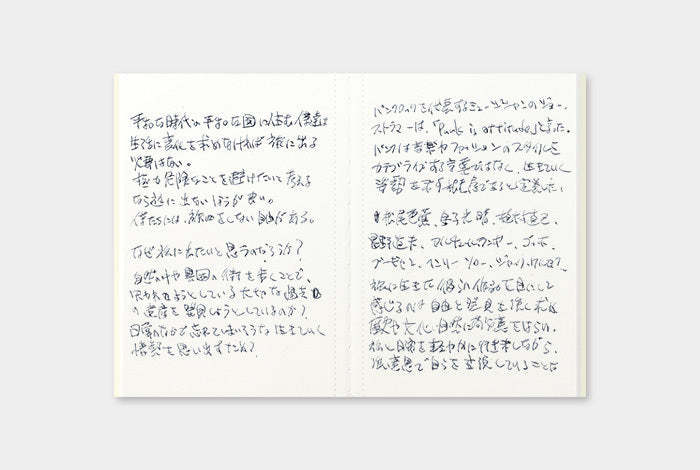 平和な時代の平和な国に住む僕達は
生活に変化を求めなければ旅に出る
必要はない。
極力危険なことを避けたいと考える
なら旅に出ないほうが良い。
僕たちには、旅をしない自由がある。
なぜ旅に出たいと思うのだろうか?
自然の中や異国の街を歩くことで、
失われようとしている大切な過去
の遺産を発見しようとしているのか?
日常のなかで忘れてしまいそうな 生きていく
情熱を思い出すため?
パンクロックを代表するミュージシャンのジョー・
ストラマーは、「Punk is attitude」と言った。
パンクは音楽やファッションのスタイルを
カテゴライズする言葉ではなく、生きていく
姿勢を示す態度であると定義した。
松尾芭蕉、金子光晴、植村直己、
星野道夫、ゴッホ、
ヘンリー・ソロー、ジャック・ケルアック
旅に生きた彼らの作品を目にして
感じるのは自由と発見を強く求め
歴史や文化、自然に敬意をはらい、
旅と日常を軽やかに往来しながら、
強い意思で自らを表現していることだ